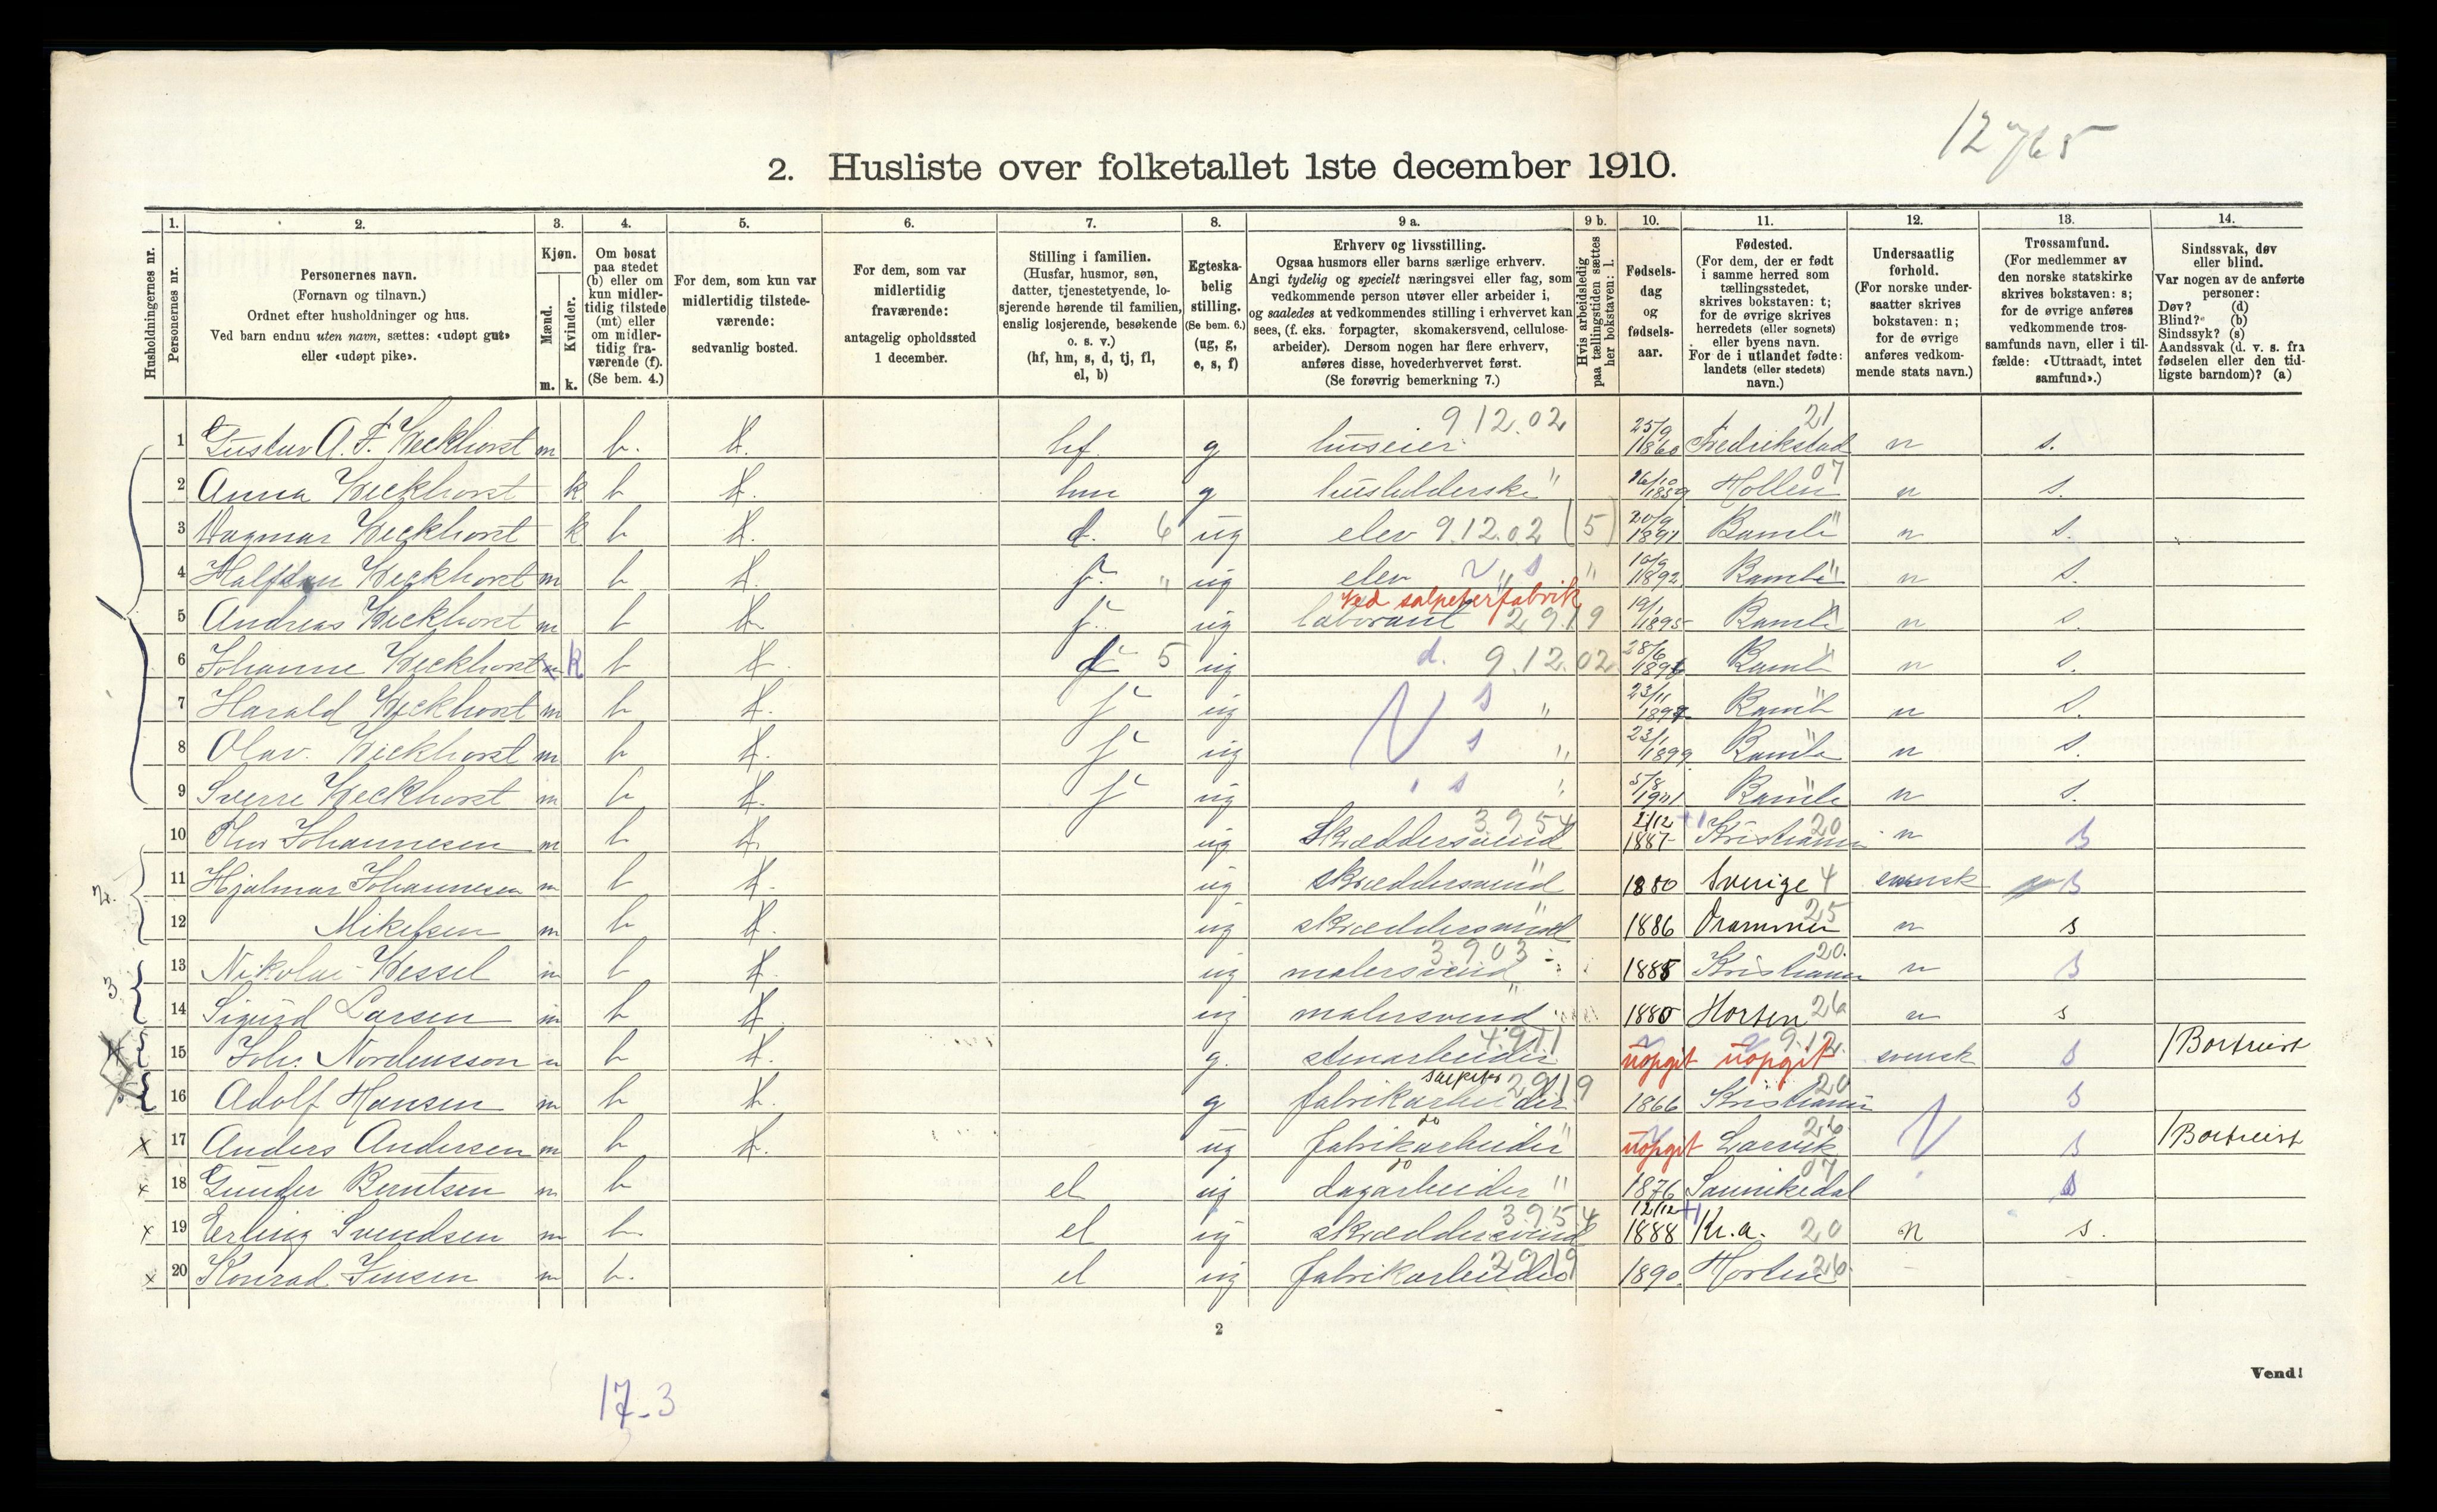 12765
2. Husliste over folketallet 1ste december 1910.
1. 2. 3. 4. 5. 6. 7. 8. 9 a. 9 b. 10. 11. 12. 13. 14.
Husholdningernes nr.
Personernes nr.
Personernes navn.
(Fornavn og tilnavn.)
Ordnet efter husholdninger og hus.
Ved barn endnu uten navn, sættes: «udøpt gut»
eller «udøpt pike».
Kjøn.
Mænd. Kvinder.
m. k.
Om bosat
paa stedet
(b) eller om
kun midler-
tidig tilstede
(mt) eller
om midler-
tidig fra-
værende (f).
(Se bem. 4.)
For dem, som kun var
midlertidig tilstede-
værende:
sedvanlig bosted.
For dem, som var
midlertidig
fraværende:
antagelig opholdssted
1 december.
Stilling i familien.
(Husfar, husmor, søn,
datter, tjenestetyende, lo-
sjerende hørende til familien,
enslig losjerende, besøkende
o. s. v.)
(hf, hm, s, d, tj, fl,
el, b)
Egteska-
belig
stilling.
(Se bem. 6.)
(ug, g,
e, s, f)
Erhverv og livsstilling.
Ogsaa husmors eller barns særlige erhverv.
Angi tydelig og specielt næringsvei eller fag, som
vedkommende person utøver eller arbeider i,
og saaledes at vedkommendes stilling i erhvervet kan
sees, (f. eks. forpagter, skomakersvend, cellulose-
arbeider). Dersom nogen har flere erhverv,
anføres disse, hovederhvervet først.
(Se forøvrig bemerkning 7.)
Hvis arbeidsledig
paa tællingstiden sættes
her bokstaven: l.
Fødsels-
dag
og
fødsels-
aar.
Fødested.
(For dem, der er født
i samme herred som
tællingsstedet,
skrives bokstaven: t;
for de øvrige skrives
herredets (eller sognets)
eller byens navn.
For de i utlandet fødte:
landets (eller stedets)
navn.)
Undersaatlig
forhold.
(For norske under-
saatter skrives
bokstaven: n;
for de øvrige
anføres vedkom-
mende stats navn.)
Trossamfund.
(For medlemmer av
den norske statskirke
skrives bokstaven: s;
for de øvrige anføres
vedkommende tros-
samfunds navn, eller i til-
fælde: «Uttraadt, intet
samfund».)
Sindssvak, døv
eller blind.
Var nogen av de anførte
personer:
Døv? (d)
Blind? (b)
Sindssyk? (s)
Aandssvak (d. v. s. fra
fødselen eller den tid-
ligste barndom)? (a)
1 Gustav A. F. Weckhorst m b. hf. g huseier 912.02 25/9 1860 Fredrikstad 21 n s.
2 Anna Weckhorst k b hm g husholderske " 26/10 1859 Hollen 07 n s.
3 Dagmar Weckhorst k b d. 6 ug elev 9.12.02 (5) 20/9 1891 Bamle " n s.
4 Halfdan Weckhorst m b s. " ug elev " s " 16/9 1892 Bamle " n s.
ved salpeterfabrik
5 Andreas Weckhorst m b s. ug laborant 2919 19/1 1895 Bamle n s.
6 Johanne Weckhorst k b d 5 ug d. 9.12.02 28/6 Bamle " n s.
7 Harald Weckhorst m b s ug s " 23/11 Bamle n s.
8 Olav Weckhorst m b s ug s " 23/1 1899 Bamle n s.
9 Sverre Weckhorst m b s ug s " 5/8 1901 Bamle n s.
10 Johannesen m b ug Skræddersvend 3954 2/12 1887 Kristiania 20 n s
2. 11 Hjalmar Johannesen m b ug skræddersvend " 1880 Sverige 4 svensk s
12 Mikelsen m b ug skræddersvend " 1886 Drammen 25 n s
3 13 Nikolai Wessel m b ug malersvend 3903 1885 Kristiania 20. n s
14 Sigurd Larsen m b ug malersvend " 1880 Horten 26 n s
15 Joh. Nordensson m b g. stenarbeider 4.911 uopgit uopgit 9.12. svensk s Bortreist
16 Adolf Hansen m b g fabrikarbeider salpeter 2919 1866 Kristiania 20 s
x 17 Anders Andersen m b ug fabrikarbeider do " uopgit Larvik 26 s Bortreist
x 18 Gunder Berntsen m b el ug dagarbeider do " 1876 Sannikedal 07 s
x 19 Erling Svendsen m b. el ug skræddersvend 3954 12/12 1888 Kr.a. 20 n s.
x 20 Konrad Jensen m b. el ug fabrikarbeider 2919 1890. Horten 26
2
Vend!
17-3